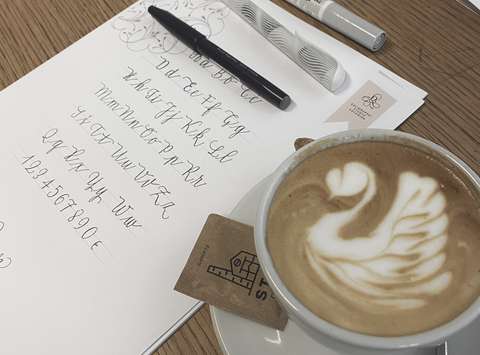 Aa Bb Cc
Dd Ee Ff Gg
Hh Ii Jj Kk Ll
Mm Nn Oo Pp Rr
Ss Tt Uu Vv Zz
Qq Xx Yy Ww
1234567890€
ST